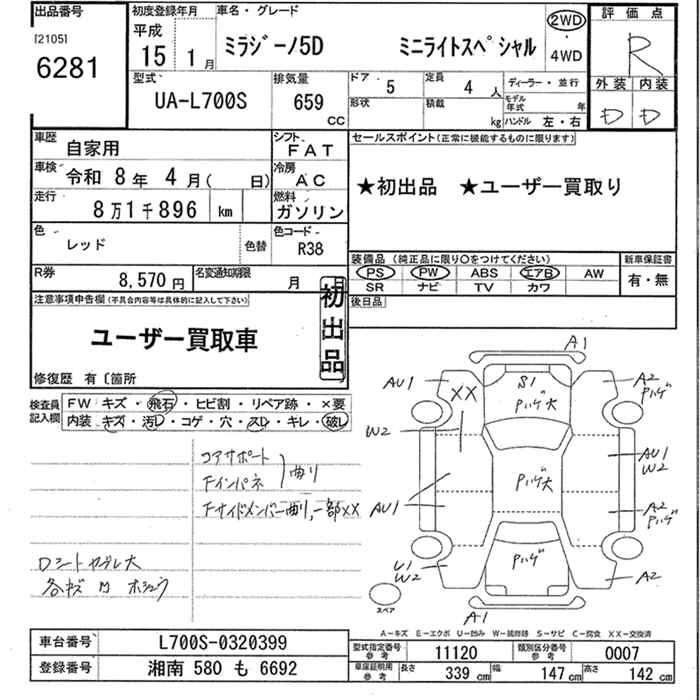 出品番号
[2105]
6281
初度登録年月
平成
15 1月
車名・グレード
ミラジーノ5D ミニライトスペシャル
2WD
・
4WD
評価点
R
外装 内装
D D
型式
UA-L700S
排気量
659
CC
ドア 5
定員 4 人
形状
積載 kg
ディーラー・並行
モデル年式 年
ハンドル 左・右
車歴 自家用
シフト FAT
車検 令和 8年 4月( 日)
冷房 AC
走行 8万1千896 km
燃料 ガソリン
色 レッド
色替
色コード R38
R券 8,570円
名変通知期限 月 日
セールスポイント(正常に機能するものに限ります)
★初出品 ★ユーザー買取り
装備品(純正品に限り○をつけてください)
PS PW ABS エアB AW
SR ナビ TV カワ
新車保証書
有・無
後日品
注意事項申告欄(不具合内容等は具体的に記入して下さい)
ユーザー買取車
初出品
修復歴 有〔箇所
検査員記入欄
FW キズ・飛石・ヒビ割・リペア跡・×要
内装・キズ・汚レ・コゲ・穴・スレ・キレ・破レ
コアサポート
Fインパネ 曲り
Fサイドメンバー曲り,一部XX
Dシートヤブレ大
A1
S1
Pハゲ大
AU1
XX
W2
A2
Pハゲ
AU1
W2
Pハゲ大
AU1
A2
Pハゲ
U1
W2
Pハゲ
A2
スペア
A1
A-キズ E-エクボ U-凹み W-補修跡 S-サビ C-腐食 XX-交換済
車台番号 L700S-0320399
登録番号 湘南 580 も 6692
型式指定番号 参考 11120
類別区分番号 参考 0007
車庫証明用 参考 長さ 339 cm 幅 147 cm 高さ 142 cm